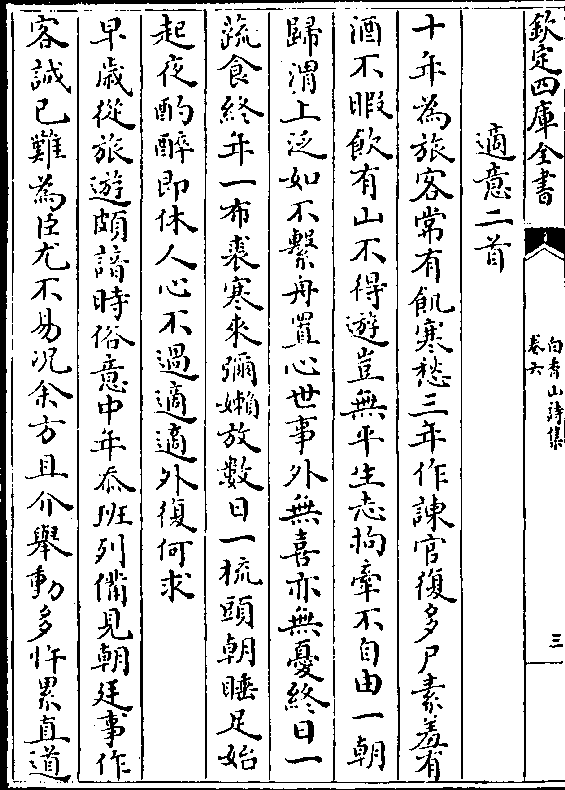 欽定四庫全書
白香山詩集
卷六
三
適意二首
十年為旅客常有飢寒愁三年作諫官復多尸素羞有
酒不暇飲有山不得遊豈無平生志拘牽不自由一朝
歸渭上泛如不繫舟置心世事外無喜亦無憂終日一
蔬食終年一布裘寒來彌嬾放數日一梳頭朝睡足始
起夜酌醉即休人心不過適適外復何求
早歲從旅遊頗諳時俗意中年忝班列備見朝廷事作
客誠已難為臣尤不易況余方且介舉動多忤累直道